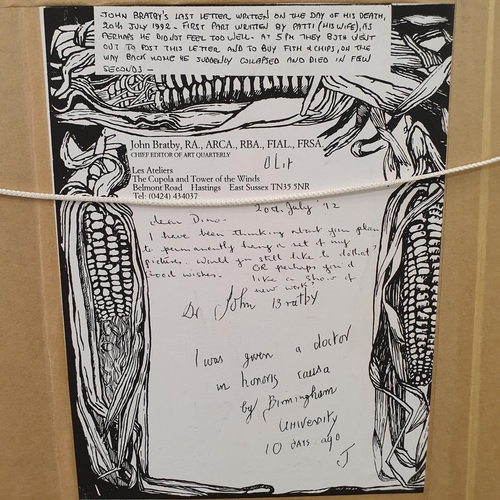 JOHN BRATBY'S LAST LETTER WRITTEN ON THE DAY OF HIS DEATH,
20TH JULY 1992 - FIRST PART WRITTEN BY PATTI (HIS WIFE), AS
PERHAPS HE DID NOT FEEL TOO WELL. AT 5 PM THEY BOTH WENT
OUT TO POST THIS LETTER AND TO BUY FISH & CHIPS, ON THE
WAY BACK HOME HE SUDDENLY COLLAPSED AND DIED IN FEW
SECONDS -
John Bratby, RA., ARCA., RBA., FIAL., FRSA.
CHIEF EDITOR OF ART QUARTERLY
DLit
Les Ateliers
The Cupola and Tower of the Winds
Belmont Road Hastings East Sussex TN35 5NR
Tel: (0424) 434037
20th July '92
dear Dino -
I have been thinking about your plan
to permanently hang a set of my
pictures. Would you still like to do that?
Good wishes. OR perhaps you'd
like a show of
new work?
Dr John Bratby
I was given a doctor
in honoris causa
by Birmingham
UNIVERSITY
10 DAYS ago
J